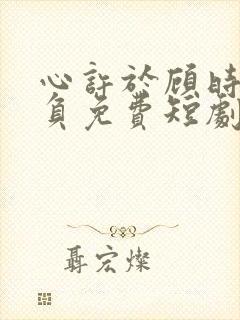 心許於顧時
負免費短劇
聶宏燦